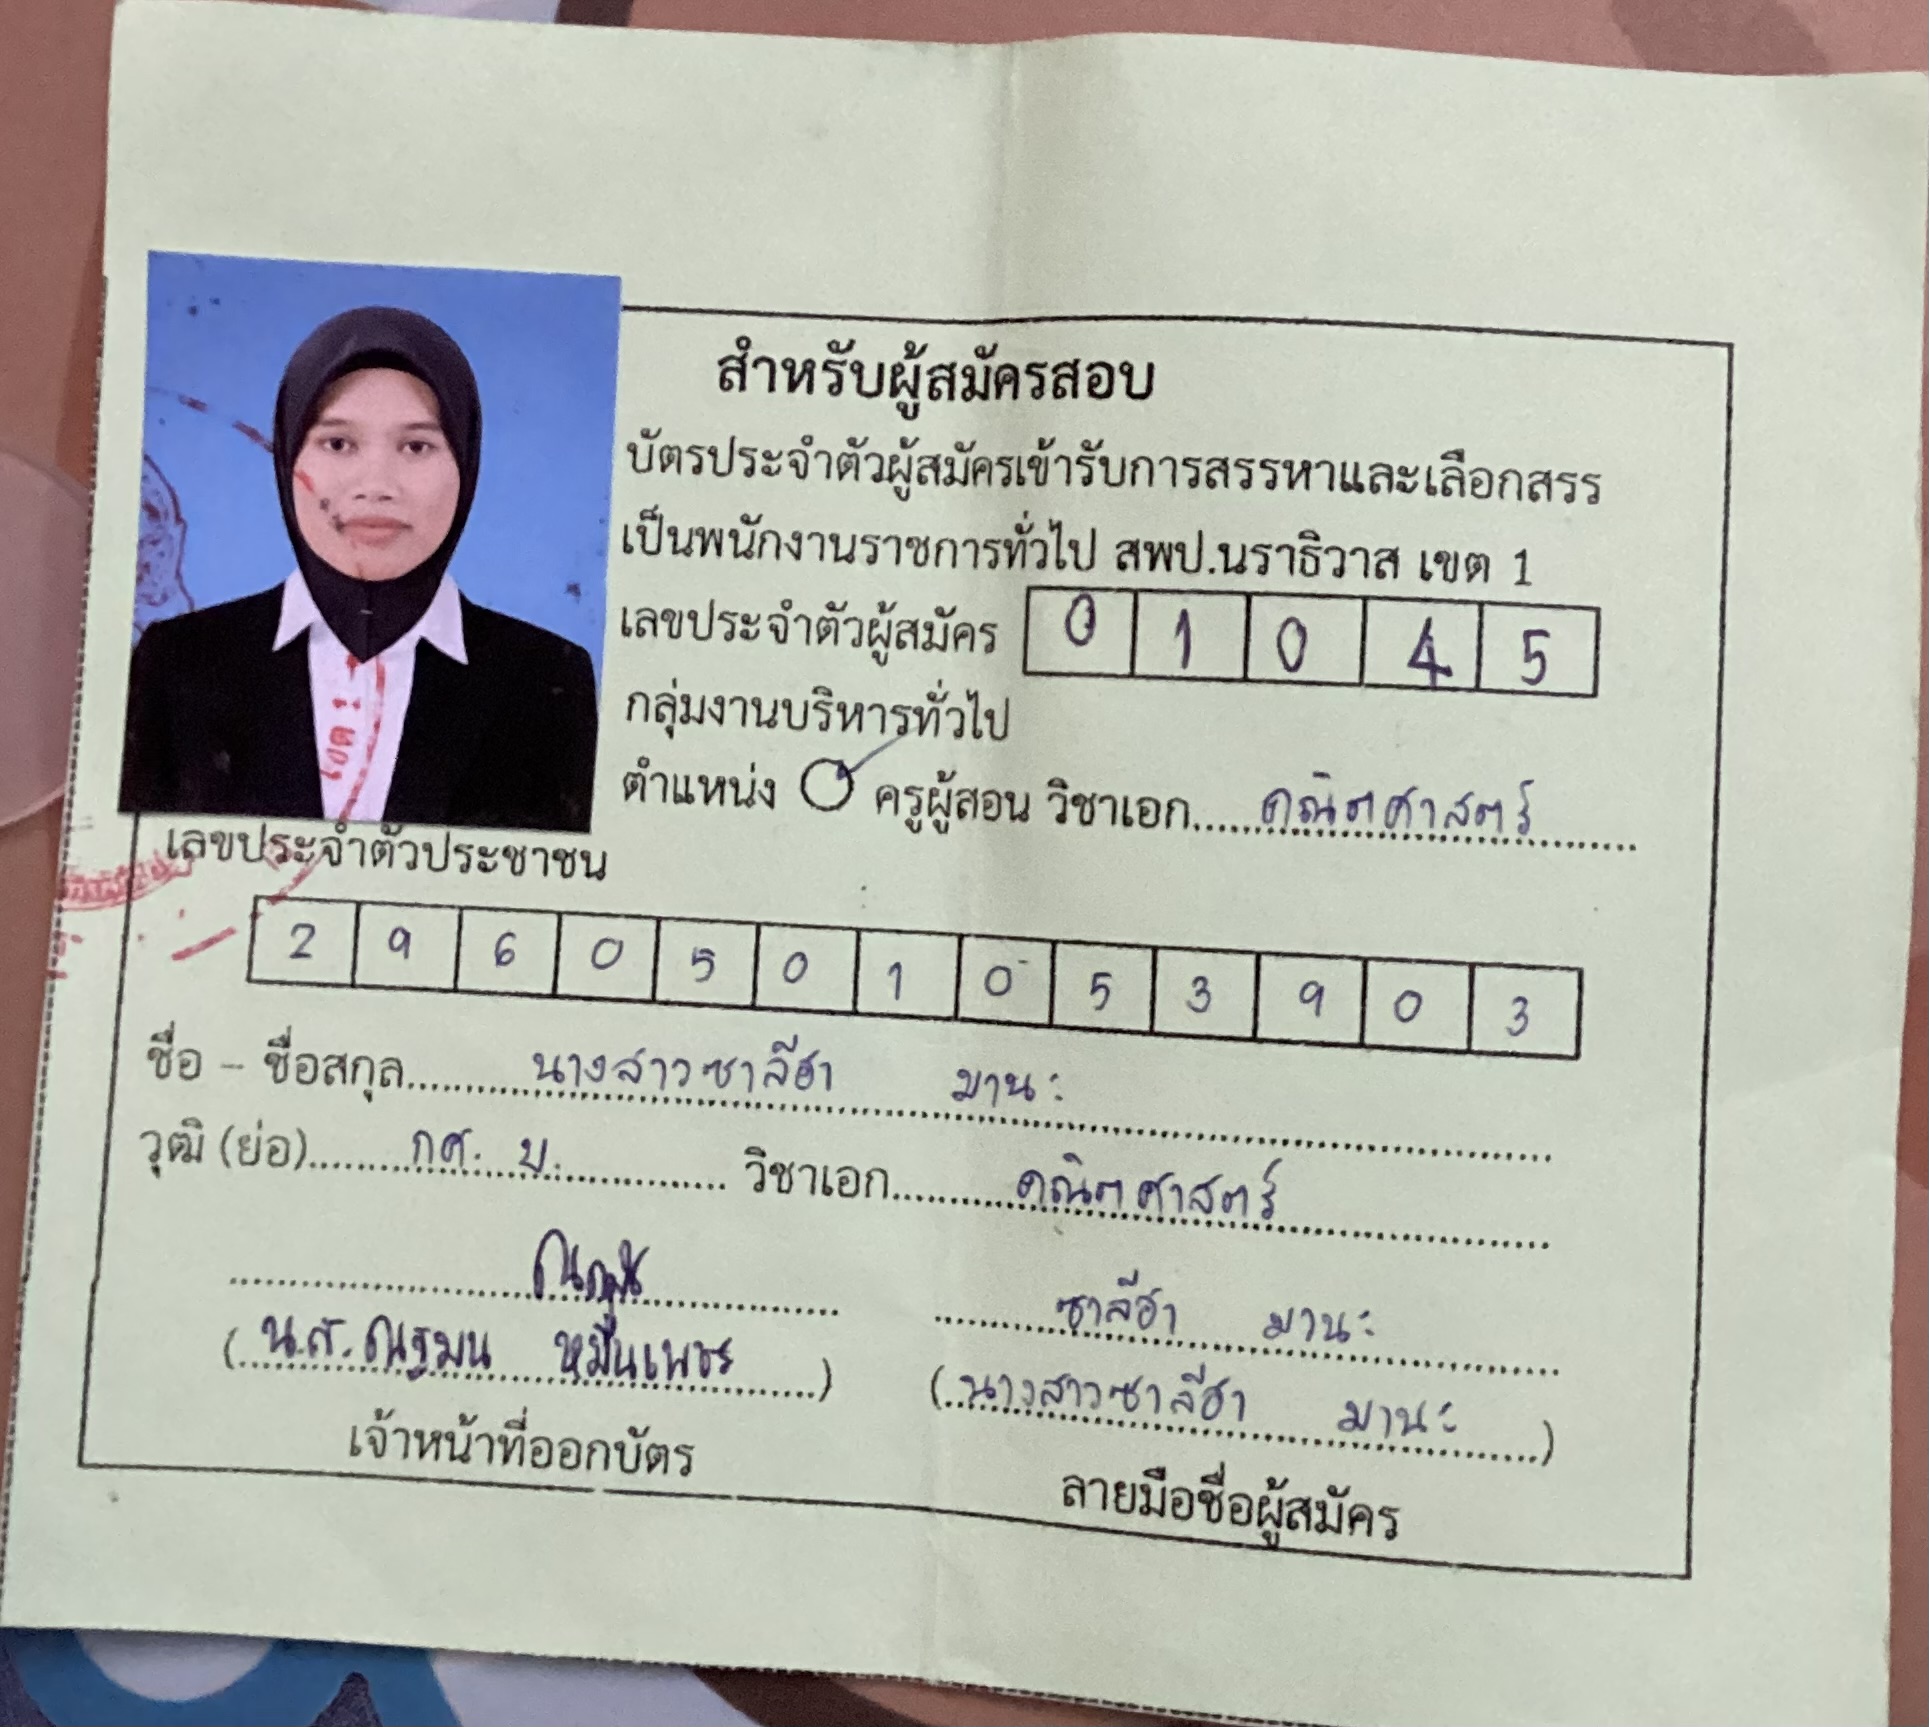 สำหรับผู้สมัครสอบ
บัตรประจำตัวผู้สมัครเข้ารับการสรรหาและเลือกสรร
เป็นพนักงานราชการทั่วไป สพป.นราธิวาส เขต 1
เลขประจำตัวผู้สมัคร 0 1 0 4 5
กลุ่มงานบริหารทั่วไป
ตำแหน่ง ครูผู้สอน วิชาเอก คณิตศาสตร์
เขต 1
เลขประจำตัวประชาชน
2 9 6 0 5 0 1 0 5 3 9 0 3
ชื่อ - ชื่อสกุล นางสาวซาลีฮา มานะ
วุฒิ (ย่อ) กศ. บ. วิชาเอก คณิตศาสตร์
ซาลีฮา มานะ
(น.ส. ณฐมน หมื่นเพชร) (นางสาวซาลีฮา มานะ)
เจ้าหน้าที่ออกบัตร ลายมือชื่อผู้สมัคร